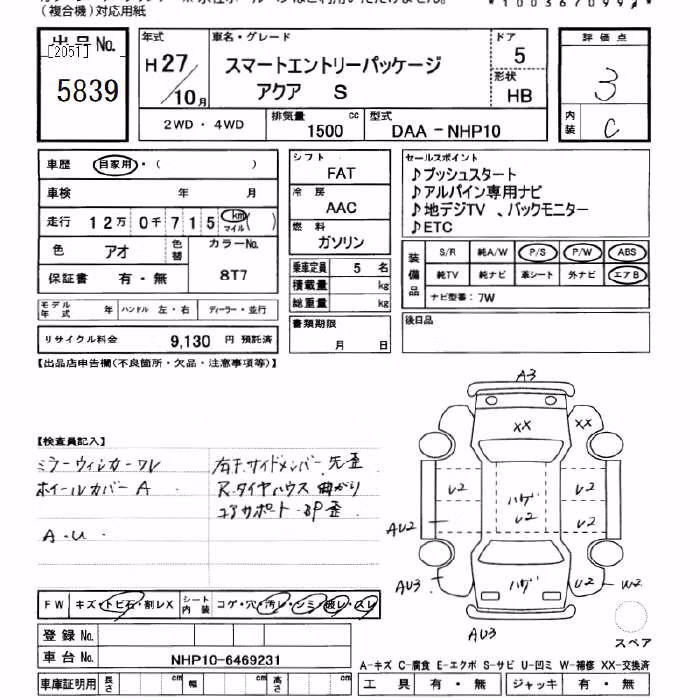 (複合機)対応用紙
*1003670994*
出品No.
[2051]
5839
年式
H27/10月
車名・グレード
スマートエントリーパッケージ
アクア S
ドア
5
形状
HB
評価点
3
内装
C
2WD・4WD
排気量
1500 cc
型式
DAA-NHP10
車歴 自家用・( )
車検 年 月
走行 12万0千715 km マイル ( )
色 アオ 色替 カラーNo. 8T7
保証書 有・無
モデル年式 年 ハンドル 左・右 ディーラー・並行
リサイクル料金 9,130 円 預託済
シフト
FAT
冷房
AAC
燃料
ガソリン
乗車定員 5 名
積載量 kg
総重量 kg
書類期限
月 日
セールスポイント
♪プッシュスタート
♪アルパイン専用ナビ
♪地デジTV 、バックモニター
♪ETC
装備品
S/R 純A/W P/S P/W ABS
純TV 純ナビ 革シート 外ナビ エアB
ナビ型番:7W
後日品
【出品店申告欄(不良箇所・欠品・注意事項等)】
【検査員記入】
ミラーウィンカーワレ
ホイールカバー A
A.U
右F.サイドメンバー先歪
R.タイヤハウス曲がり
コアサポート・BP歪
A3
XX
XX
U2
ハゲ
U2
U2
U2
AU2
AU3
ハゲ
U2
W2
AU3
スペア
FW キズ・トビ石・割レX シート内装 コゲ・穴・汚レ・シミ・破レ・スレ
登録No.
車台No. NHP10-6469231
車庫証明用 長さ cm 幅 cm 高さ cm
A-キズ C-腐食 E-エクボ S-サビ U-凹ミ W-補修 XX-交換済
工具 有・無 ジャッキ 有・無